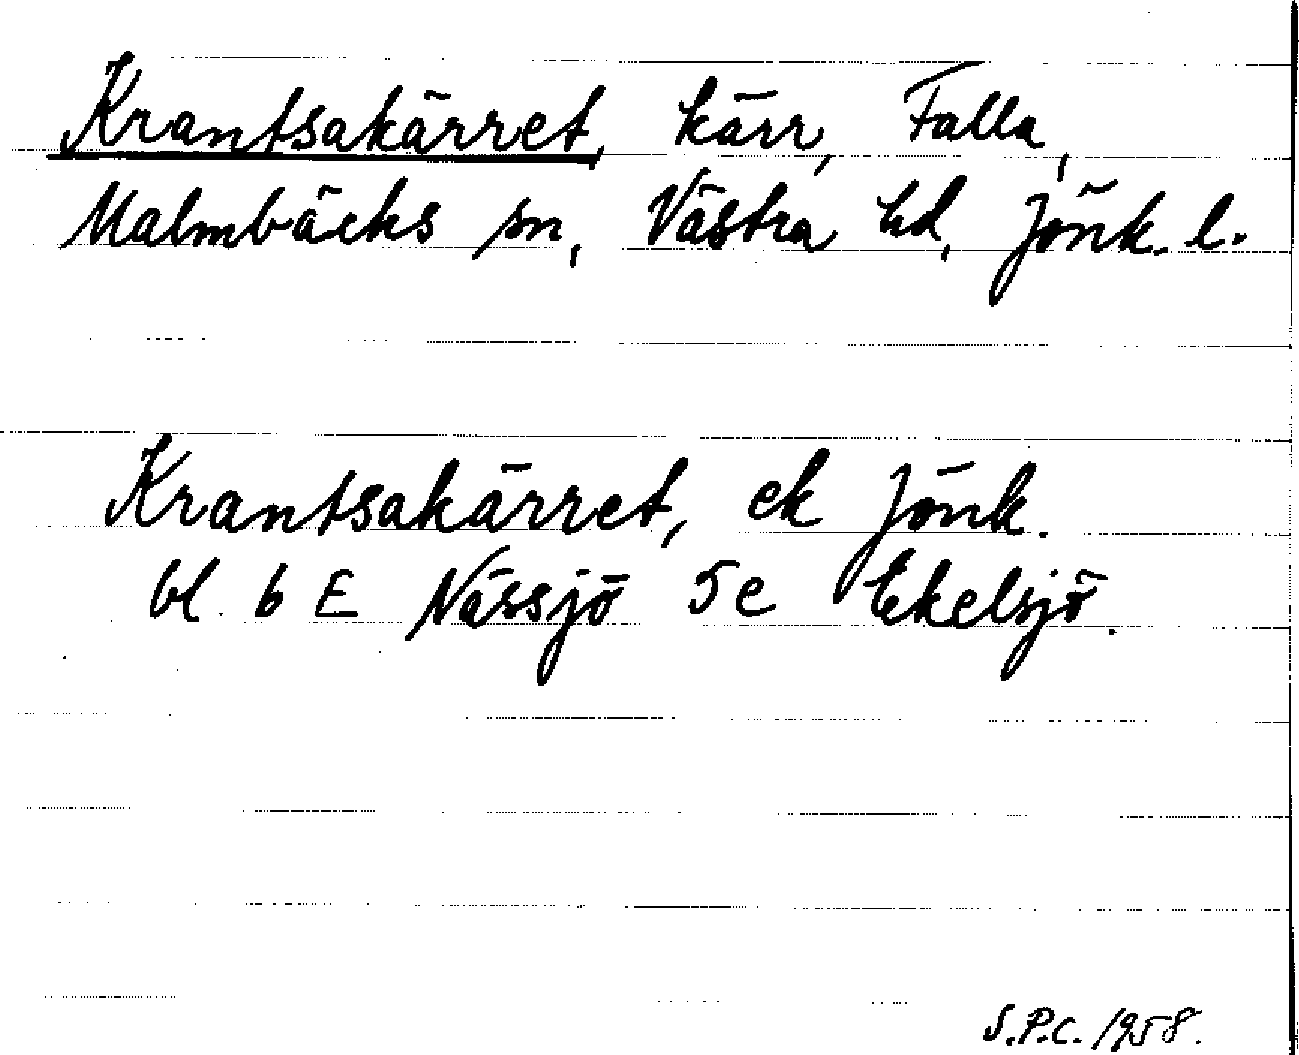 Krantsakärret, kärr, Falla,
Malmbäcks sn, Västra hd, Jönk. l.
Krantsakärret, ek Jönk.
bl. 6 E Nässjö 5 e Ekelsjö.
S.P.C. 1958.